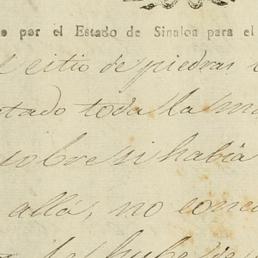 por el Estado de Sinaloa para el
el sitio de piedras
tado toda la
sobre si habia
allá, no